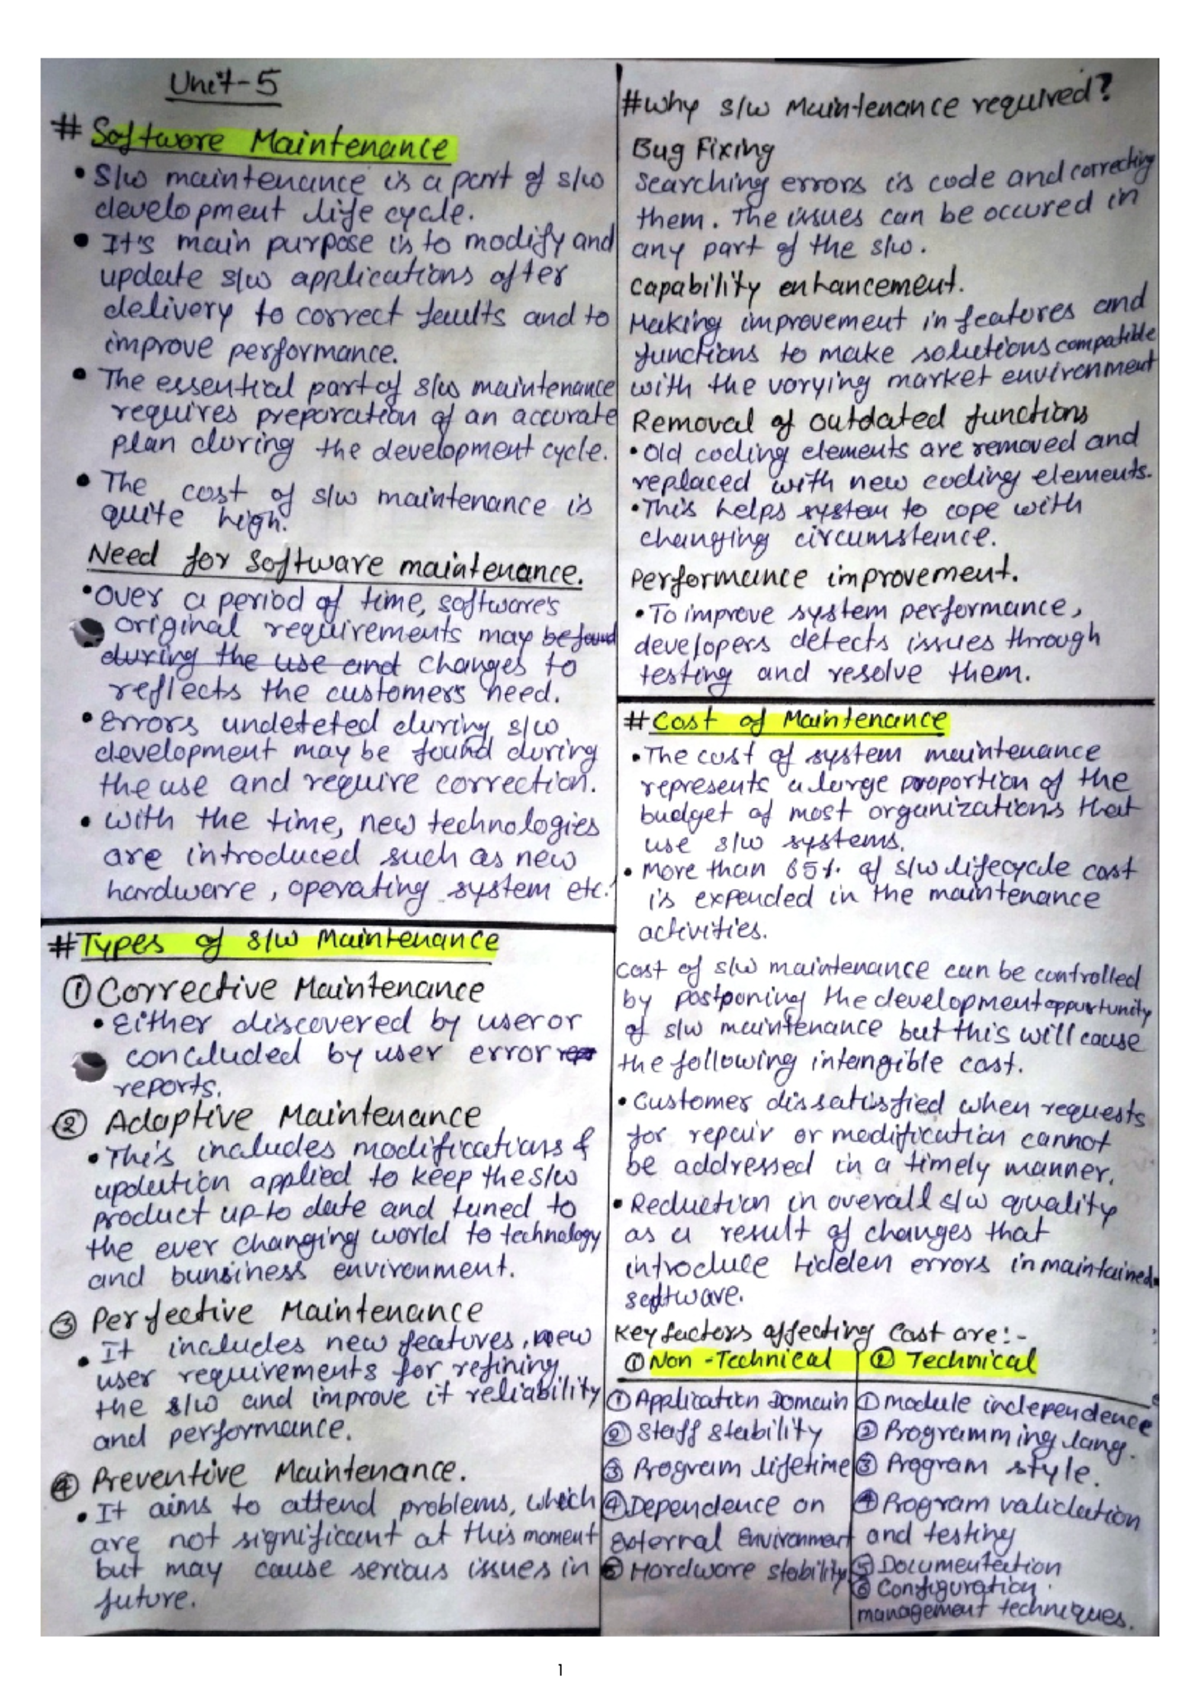 Unit-5
# Software Maintenance
• S/w maintenance is a part of s/w
development life cycle.
• It's main purpose is to modify and
update s/w applications after
delivery to correct faults and to
improve performance.
• The essential part of s/w maintenance
requires preparation of an accurate
plan during the development cycle.
• The cost of s/w maintenance is
quite high.
Need for Software maintenance.
• Over a period of time, software's
original requirements may be found
during the use and changes to
reflects the customers need.
• Errors undeteted during s/w
development may be found during
the use and require correction.
• With the time, new technologies
are introduced such as new
hardware, operating system etc.
# Types of S/W Maintenance
① Corrective Maintenance
• Either discovered by user or
concluded by user error rep
reports.
② Adaptive Maintenance
• This includes modifications &
updation applied to keep the s/w
product up-to date and tuned to
the ever changing world to technology
and bunsiness environment.
③ Perfective Maintenance
• It includes new features, new
user requirements for refining
the s/w and improve it reliability
and performance.
④ Preventive Maintenance.
• It aims to attend problems, which
are not significant at this moment
but may cause serious issues in
future.
# Why s/w Maintenance required?
Bug Fixing
Searching errors is code and correcting
them. The issues can be occured in
any part of the s/w.
Capability enhancement.
Making improvement in features and
functions to make solutions compatible
with the varying market environment
Removal of outdated functions
• Old coding elements are removed and
replaced with new coding elements.
• This helps system to cope with
changing circumstance.
Performance improvement.
• To improve system performance,
developers detects issues through
testing and resolve them.
# Cost of Maintenance
• The cost of system maintenance
represents a large proportion of the
budget of most organizations that
use s/w systems.
• More than 85% of s/w lifecycle cost
is expended in the maintenance
activities.
Cost of s/w maintenance can be controlled
by postponing the development oppurtunity
of s/w maintenance but this will cause
the following intangible cost.
• Customer dissatisfied when requests
for repair or modification cannot
be addressed in a timely manner.
• Reduction in overall s/w quality
as a result of changes that
introduce hidden errors in maintained
software.
Key factors affecting Cost are:-
① Non-Technical
① Application Domain
② Staff stability
③ Program lifetime
④ Dependence on
External Environment
⑤ Hardware stability
② Technical
① module independence
② Programming lang.
③ Program style.
④ Program validation
and testing
⑤ Documentation
⑥ Configuration
management techniques.
1